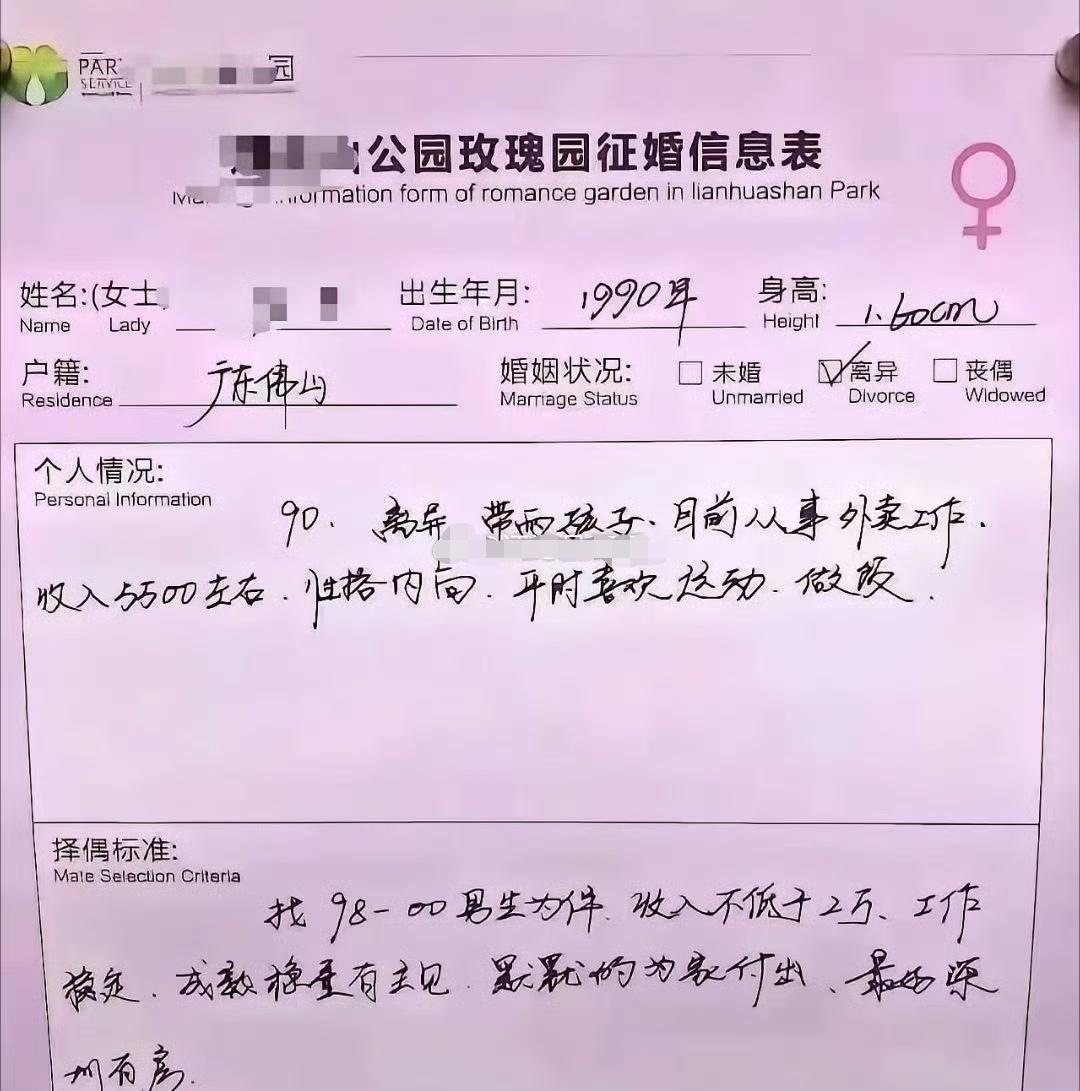 PAR
SERVICE
园
公园玫瑰园征婚信息表
information form of romance garden in lianhuashan Park
姓名:(女士 出生年月: 1990年 身高: 1.60cm
Name Lady Date of Birth Height
户籍: 广东佛山 婚姻状况: 未婚 离异 丧偶
Residence Marriage Status Unmarried Divorce Widowed
个人情况:
Personal Information
90. 离异 带两孩子. 目前从事外卖工作.
收入5500左右. 性格内向. 平时喜欢运动. 做饭.
择偶标准:
Mate Selection Criteria
找98-00男生为伴. 收入不低于2万、工作
稳定. 成熟稳重有主见. 默默的为家付出、最好深
圳有房.